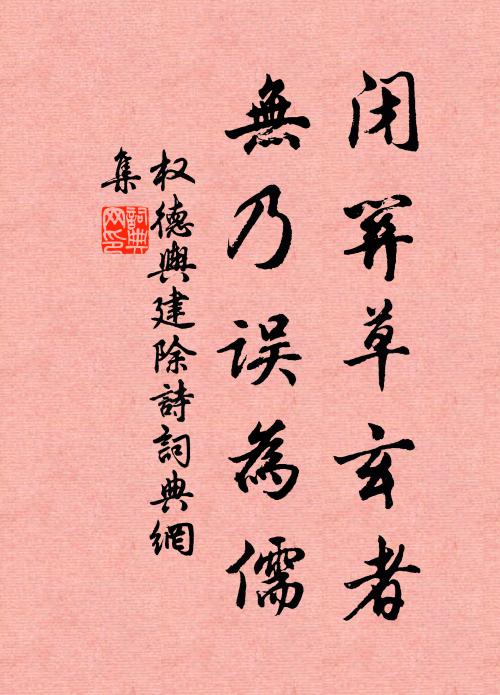 闭關草玄者
無乃误為儒
权德輿建除詩詞典網
集
詞典
网印